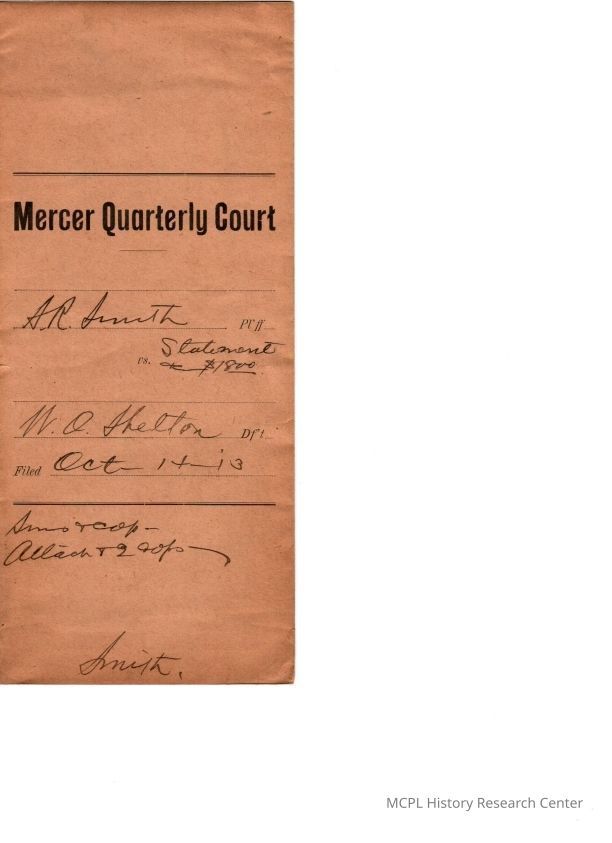 Mercer Quarterly Court
A.R. Smith Pl'ff
Statement
vs. $1800
W. O. Shelton Df't
Filed Oct - 14 - 13
Sums & cop -
Attach & 2 cops
Smith.
MCPL History Research Center